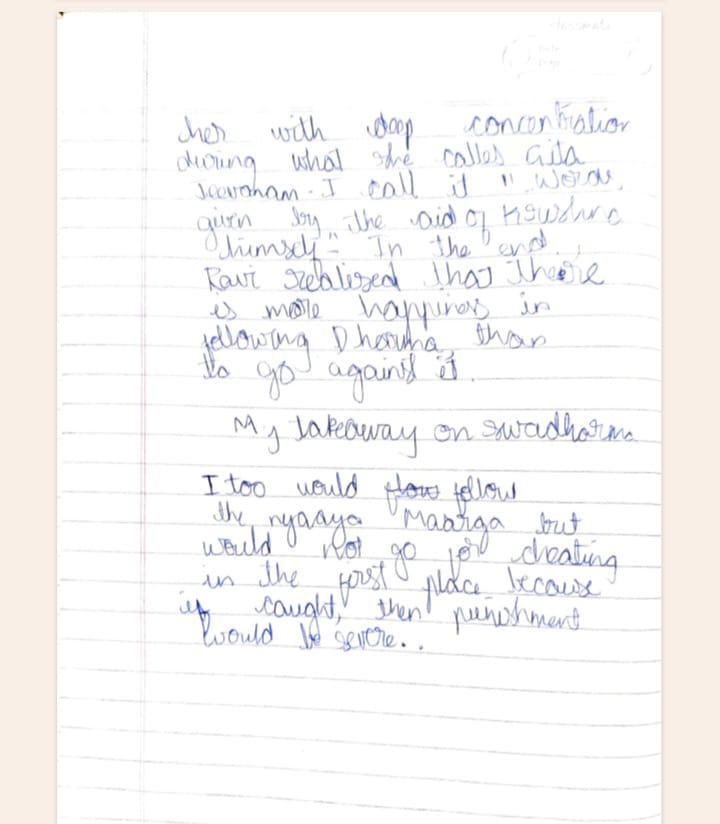 classmate
Date
Page
her with deep concentration
during what she calles Gita
Jeevanam. I call it " Words
given by the aid of Krushna
himself". In the end,
Ravi realised that there
is more happiness in
following Dharma than
to go against it.
My takeaway on swadharma
I too would flow follow
the nyaaya Maarga but
would not go for cheating
in the first place because
if caught, then punishment
would be severe..